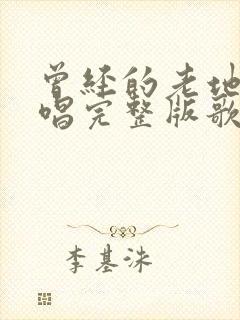 曾经的老地
唱完整版歌
李基洙